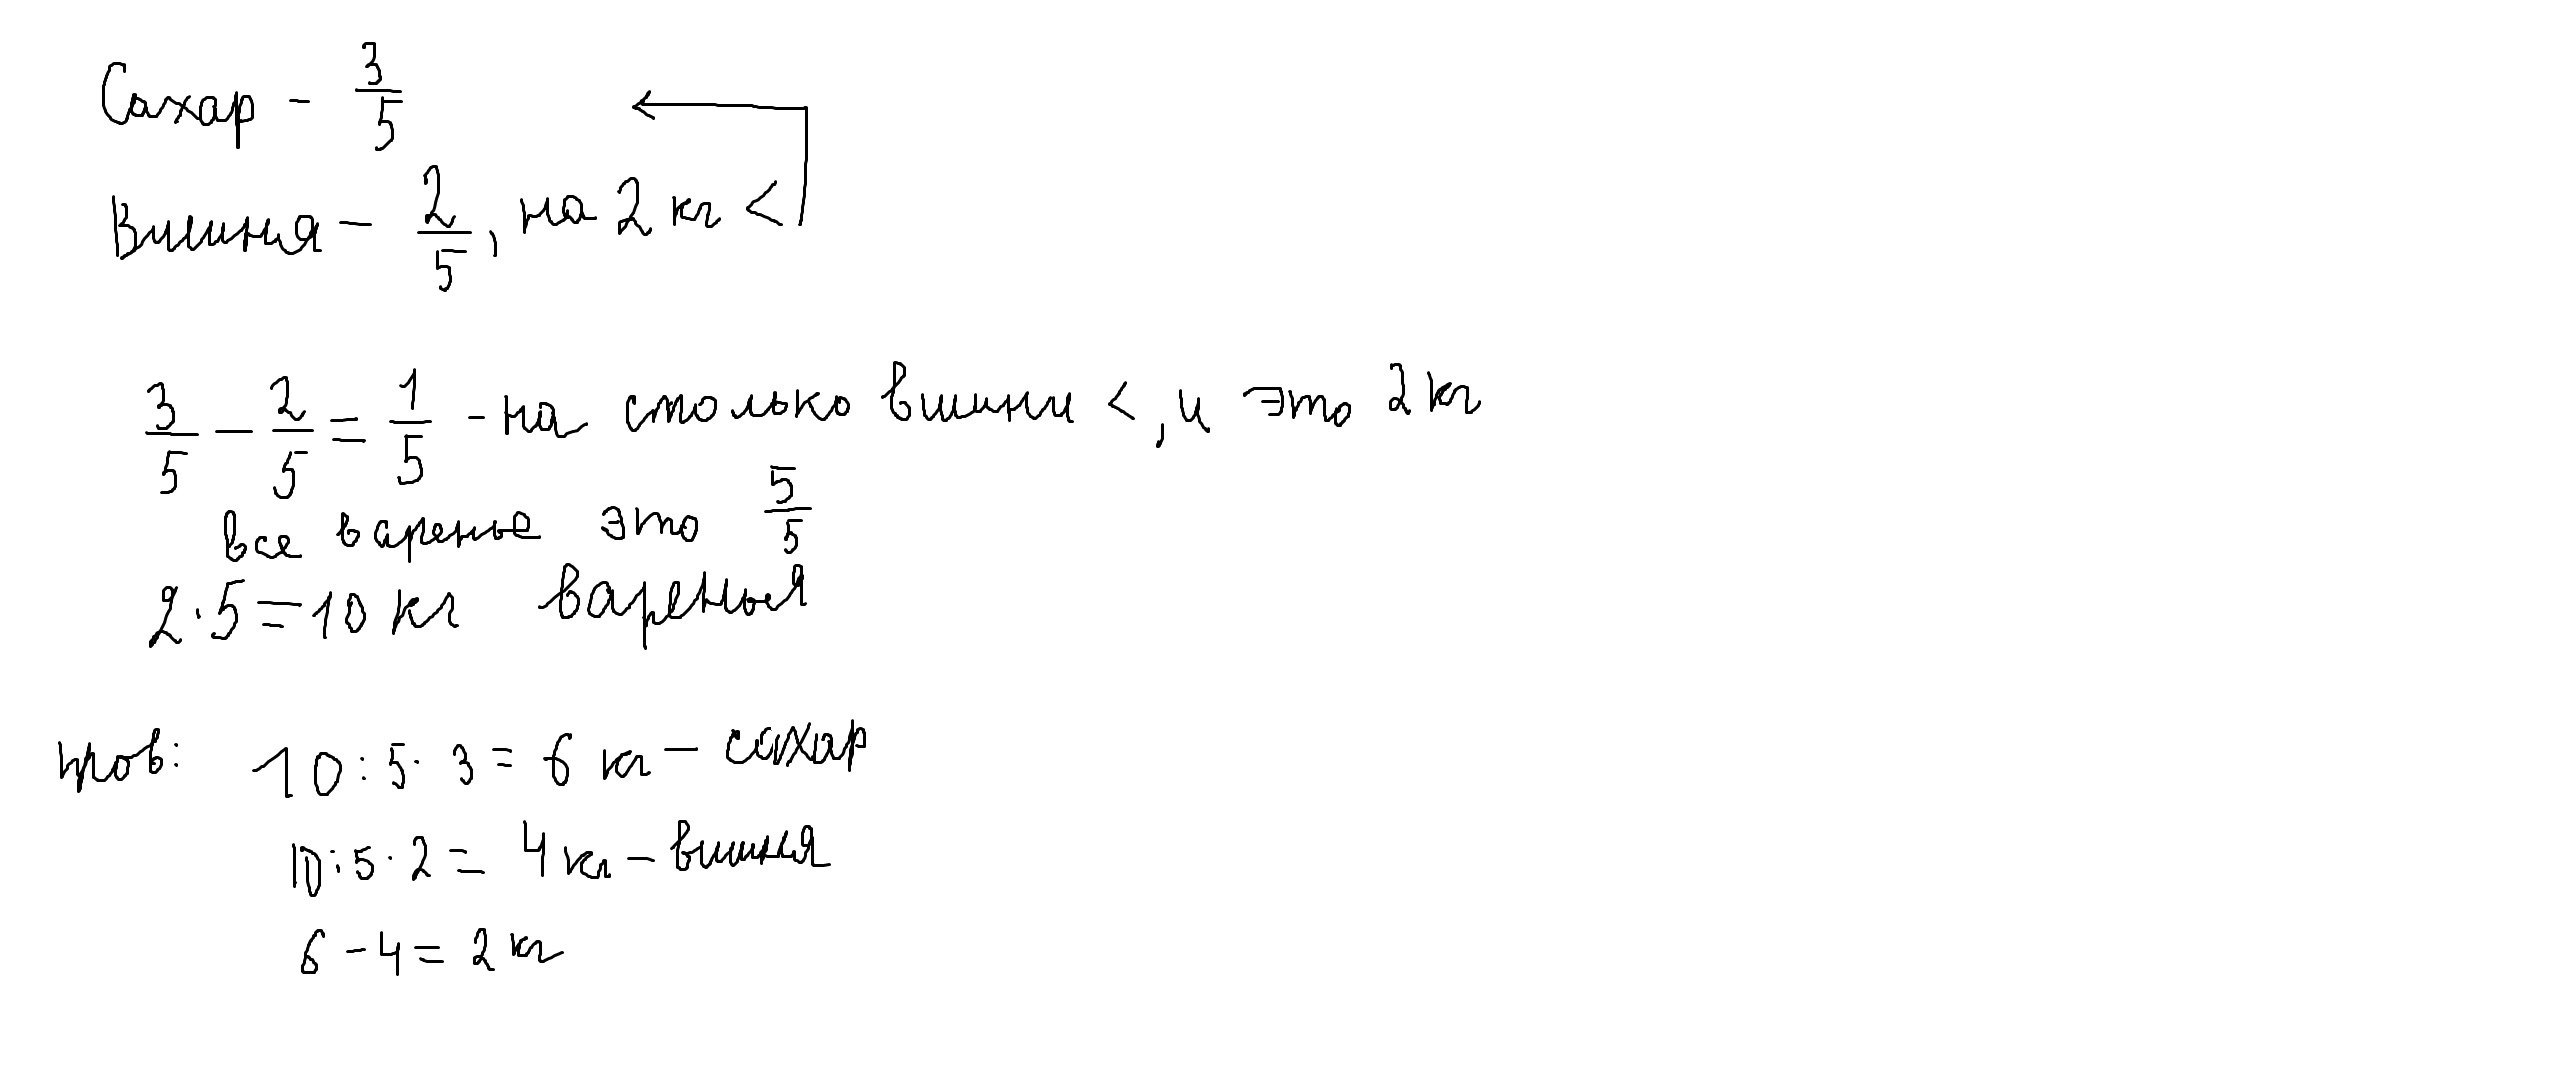 Сахар - 3/5
Вишня - 2/5, на 2 кг <
3/5 - 2/5 = 1/5 - на столько вишни <, и это 2 кг
все варенье это 5/5
2·5=10 кг варенья
пров: 10:5·3=6 кг - сахар
10:5·2=4 кг - вишня
6-4=2 кг